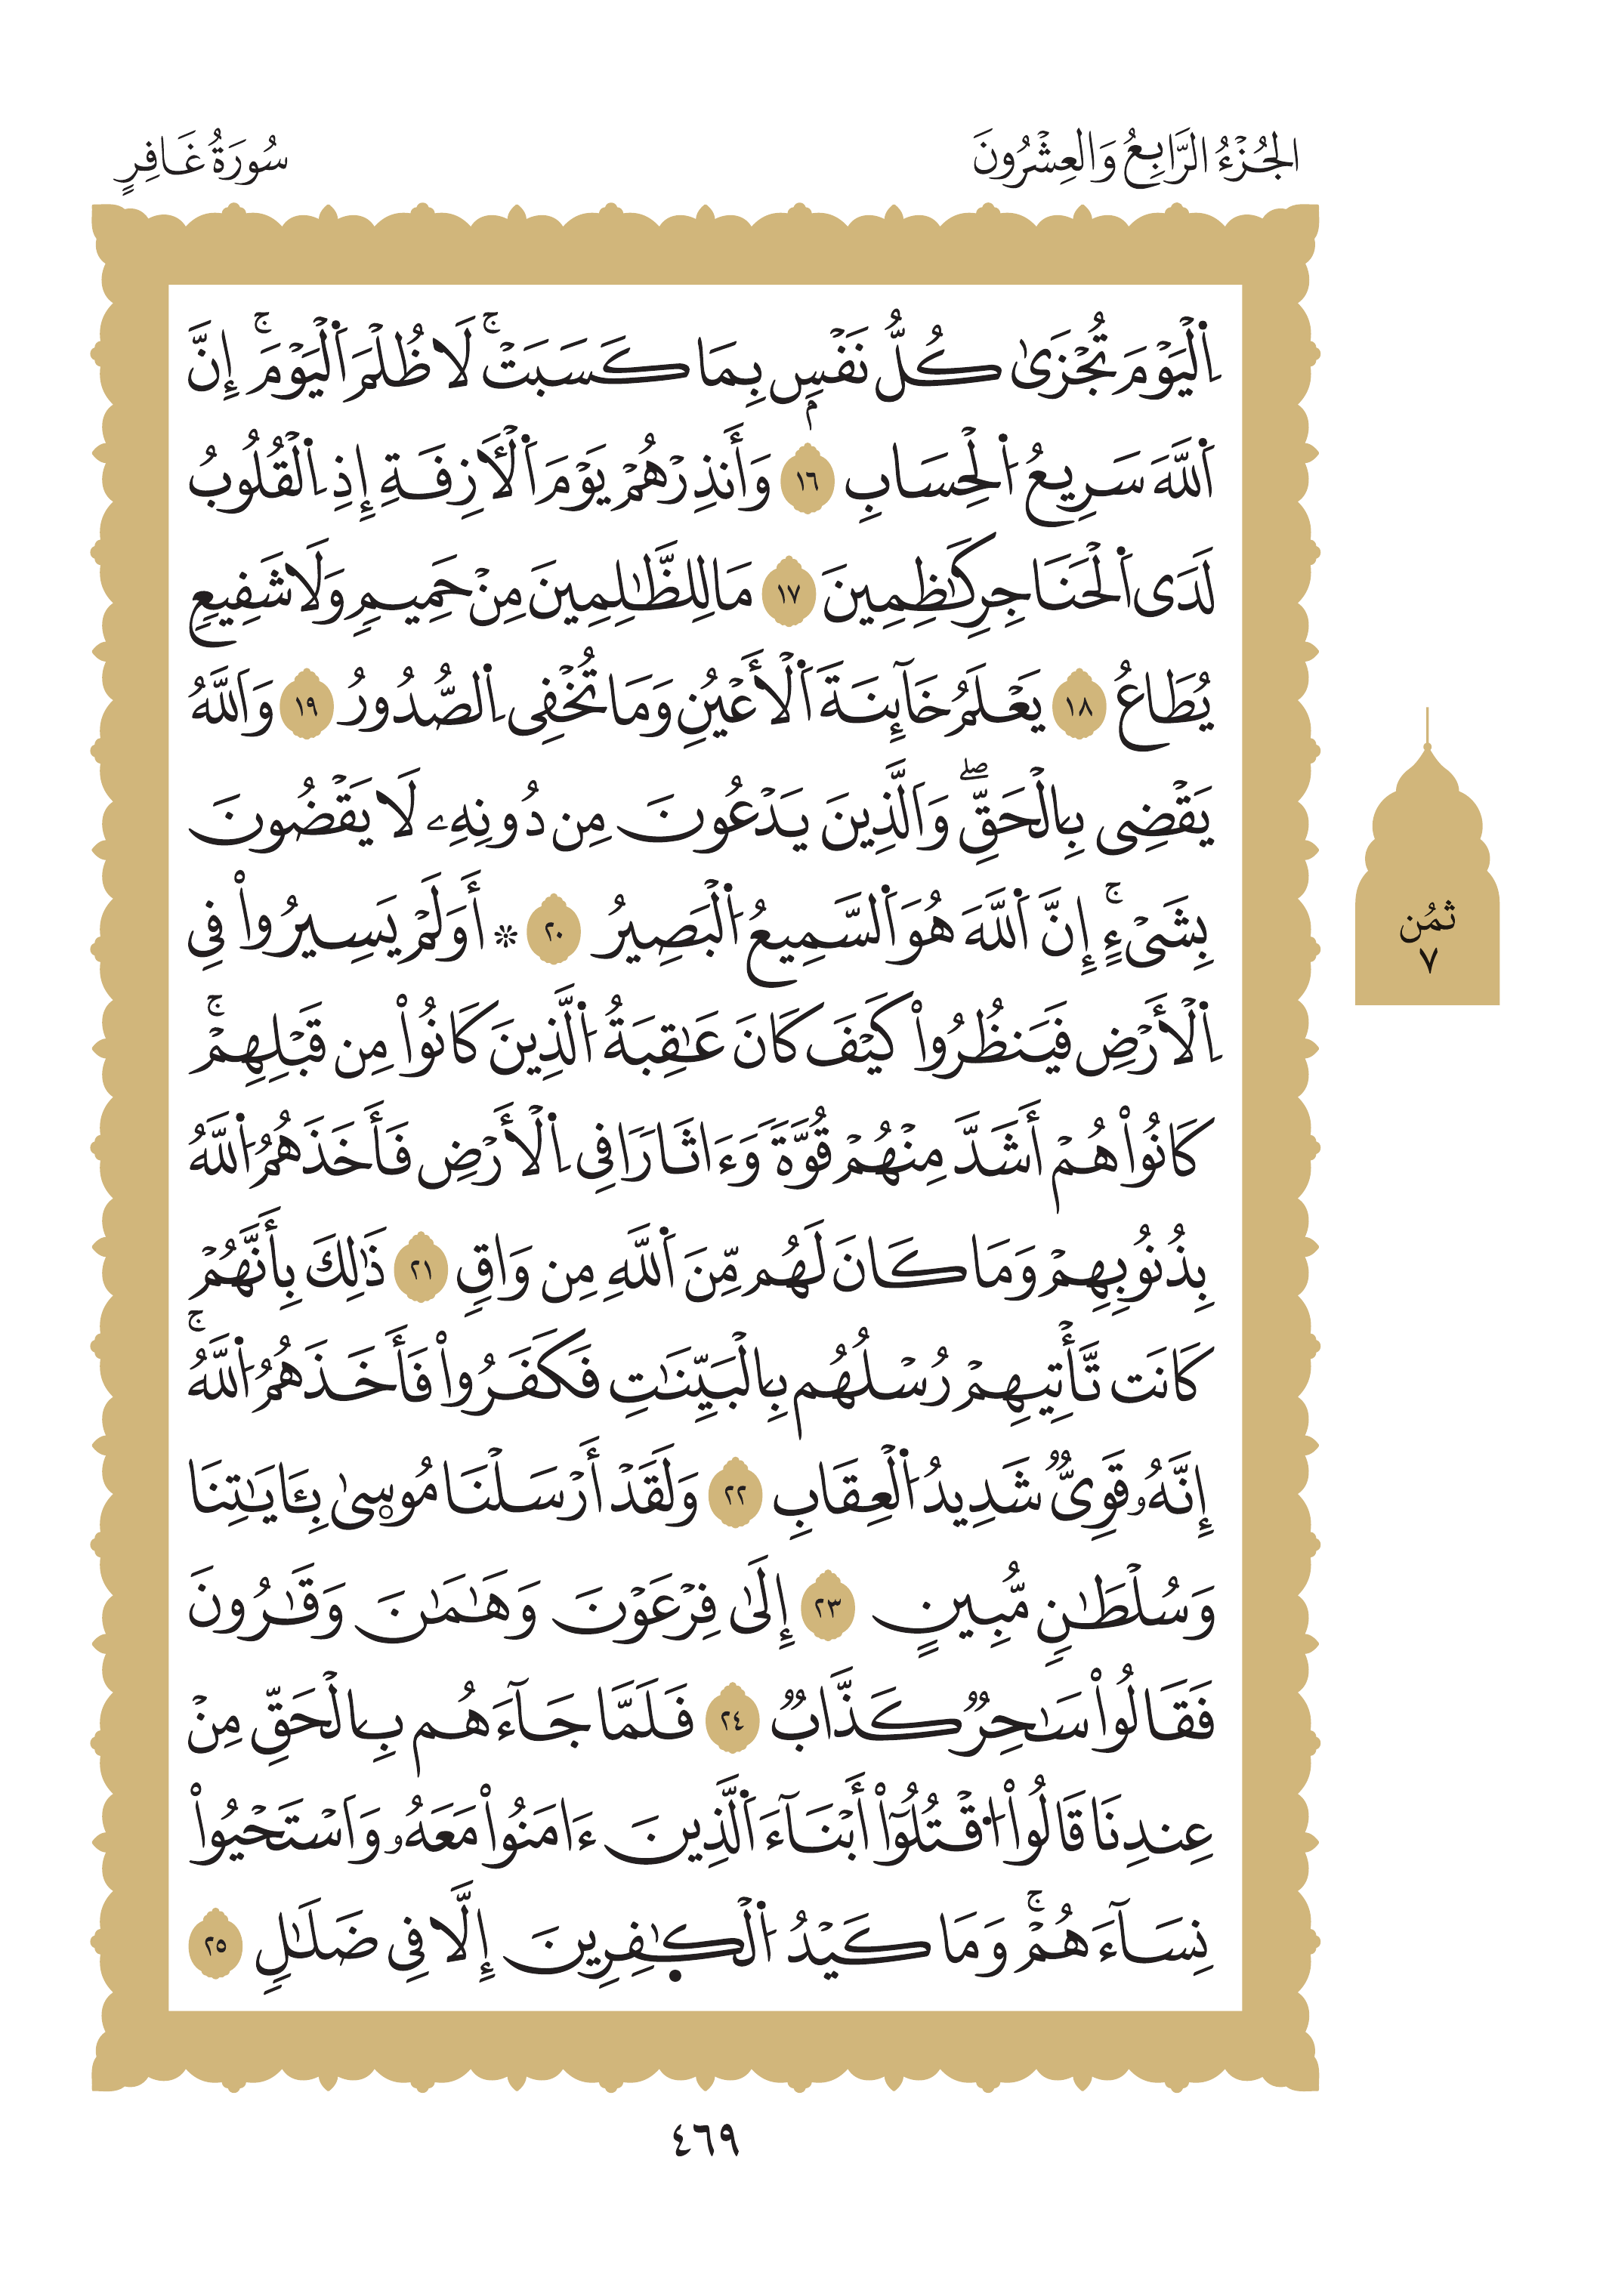 الجُزْءُ الرَّابِعُ وَالعِشْرُونَ
سُورَةُ غَافِرٍ
اِ۬لْيَوْمَ تُجْزَىٰ كُلُّ نَفْسِۢ بِمَا كَسَبَتْۚ لَا ظُلْمَ اَ۬لْيَوْمَۚ إِنَّ
اَ۬للَّهَ سَرِيعُ اُ۬لْحِسَابِ ١٦ وَأَنذِرْهُمْ يَوْمَ اَ۬لْأَزِفَةِ إِذِ اِ۬لْقُلُوبُ
لَدَى اَ۬لْحَنَاجِرِ كَٰظِمِينَ ١٧ مَا لِلظَّٰلِمِينَ مِنْ حَمِيمٖ وَلَا شَفِيعٖ
يُطَاعُ ١٨ يَعْلَمُ خَآئِنَةَ اَ۬لْأَعْيُنِ وَمَا تُخْفِى اِ۬لصُّدُورُ ١٩ وَاَللَّهُ
يَقْضِى بِالْحَقِّۖ وَاَلَّذِينَ يَدْعُونَ مِن دُونِهِۦ لَا يَقْضُونَ
بِشَىْءٍۚ إِنَّ اَ۬للَّهَ هُوَ اَ۬لسَّمِيعُ اُ۬لْبَصِيرُ ٢٠ ۞ أَوَلَمْ يَسِيرُواْ فِى
اِ۬لْأَرْضِ فَيَنظُرُواْ كَيْفَ كَانَ عَٰقِبَةُ اُ۬لَّذِينَ كَانُواْ مِن قَبْلِهِمْۚ
كَانُواْ هُمْ أَشَدَّ مِنْهُمْ قُوَّةٗ وَءَاثَارٗا فِى اِ۬لْأَرْضِ فَأَخَذَهُمُ اُ۬للَّهُ
بِذُنُوبِهِمْ وَمَا كَانَ لَهُم مِّنَ اَ۬للَّهِ مِن وَاقٖ ٢١ ذَٰلِكَ بِأَنَّهُمْ
كَانَت تَّأْتِيهِمْ رُسْلُهُم بِالْبَيِّنَٰتِ فَكَفَرُواْ فَأَخَذَهُمُ اُ۬للَّهُۚ
إِنَّهُۥ قَوِىّٞ شَدِيدُ اُ۬لْعِقَابِ ٢٢ وَلَقَدْ أَرْسَلْنَا مُوس۪ىٰ بِـَٔايَٰتِنَا
وَسُلْطَٰنٖ مُّبِينٍ ٢٣ إِلَىٰ فِرْعَوْنَ وَهَٰمَٰنَ وَقَٰرُونَ
فَقَالُواْ سَٰحِرٞ كَذَّابٞ ٢٤ فَلَمَّا جَآءَهُم بِالْحَقِّ مِنْ
عِندِنَا قَالُواْ اُ۟قْتُلُوٓاْ أَبْنَآءَ اَ۬لَّذِينَ ءَامَنُواْ مَعَهُۥ وَاَسْتَحْيُواْ
نِسَآءَهُمْۚ وَمَا كَيْدُ اُ۬لْكٰٜفِرِينَ إِلَّا فِى ضَلَٰلٖ ٢٥
ثُمُن
٧
٤٦٩